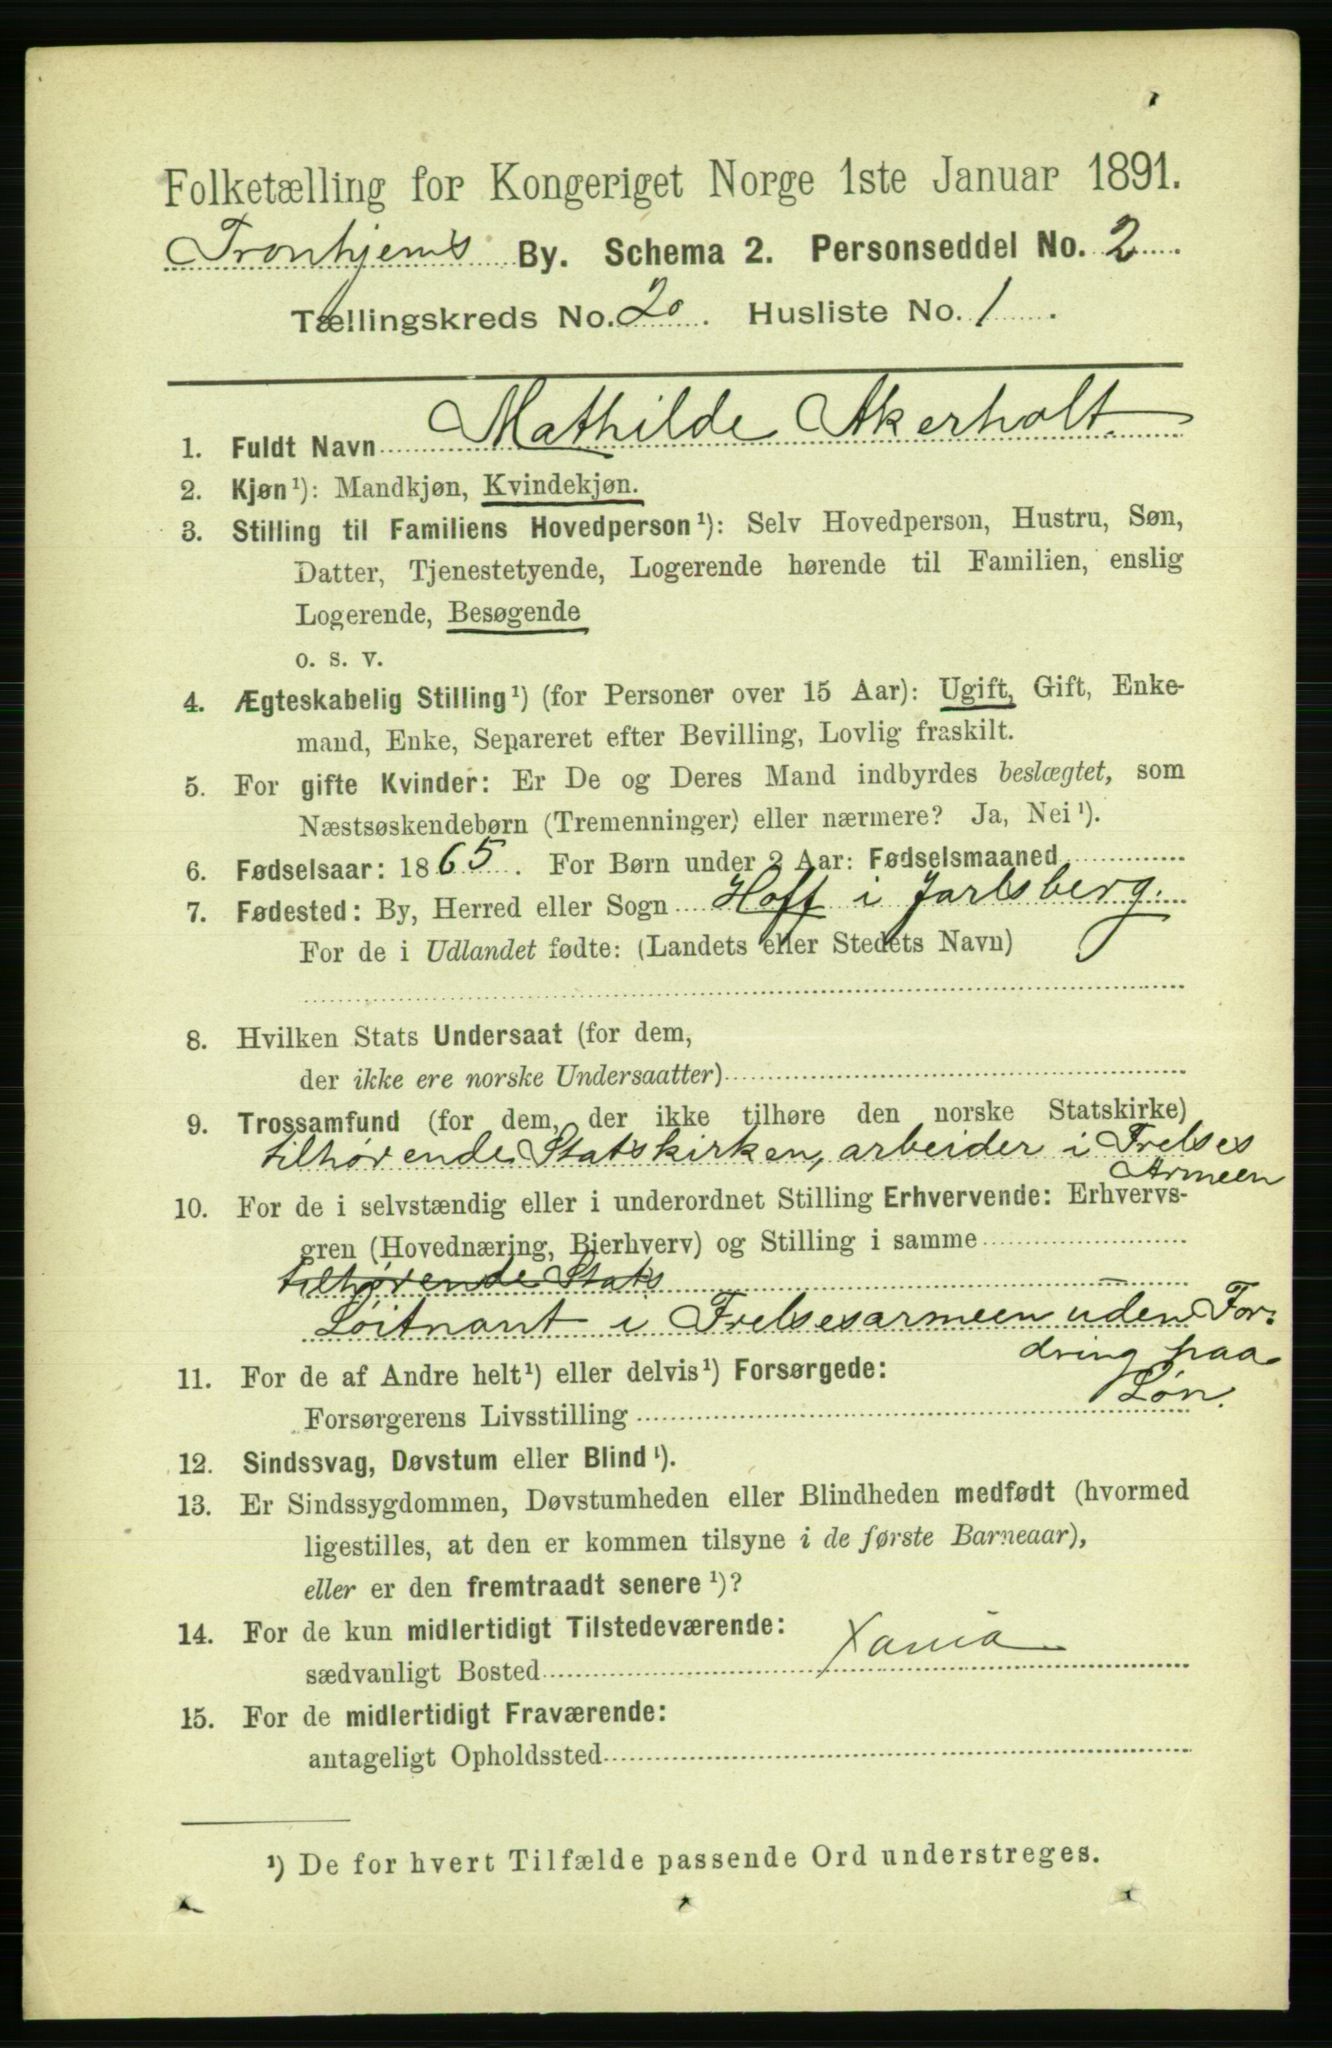 Folketælling for Kongeriget Norge 1ste Januar 1891.
Tronhjems By. Schema 2. Personseddel No. 2
Tællingskreds No. 20. Husliste No. 1.
1. Fuldt Navn Mathilde Akerholt
2. Kjøn¹): Mandkjøn, Kvindekjøn.
3. Stilling til Familiens Hovedperson¹): Selv Hovedperson, Hustru, Søn,
Datter, Tjenestetyende, Logerende hørende til Familien, enslig
Logerende, Besøgende
o. s. v.
4. Ægteskabelig Stilling¹) (for Personer over 15 Aar): Ugift, Gift, Enke-
mand, Enke, Separeret efter Bevilling, Lovlig fraskilt.
5. For gifte Kvinder: Er De og Deres Mand indbyrdes beslægtet, som
Næstsøskendebørn (Tremenninger) eller nærmere? Ja, Nei¹).
6. Fødselsaar: 1865. For Børn under 2 Aar: Fødselsmaaned
7. Fødested: By, Herred eller Sogn Hoff i Jarlsberg.
For de i Udlandet fødte: (Landets eller Stedets Navn)
8. Hvilken Stats Undersaat (for dem,
der ikke ere norske Undersaatter)
9. Trossamfund (for dem, der ikke tilhøre den norske Statskirke)
tilhørende Statskirken, arbeider i Frelses
Armeen
10. For de i selvstændig eller i underordnet Stilling Erhvervende: Erhvervs-
gren (Hovednæring, Bierhverv) og Stilling i samme
tilhørende Stats
Løitnant i Frelsesarmeen uden For:
dring paa
11. For de af Andre helt¹) eller delvis¹) Forsørgede:
Løn.
Forsørgerens Livsstilling
12. Sindssvag, Døvstum eller Blind¹).
13. Er Sindssygdommen, Døvstumheden eller Blindheden medfødt (hvormed
ligestilles, at den er kommen tilsyne i de første Barneaar),
eller er den fremtraadt senere¹)?
14. For de kun midlertidigt Tilstedeværende:
sædvanligt Bosted Xania
15. For de midlertidigt Fraværende:
antageligt Opholdssted
¹) De for hvert Tilfælde passende Ord understreges.